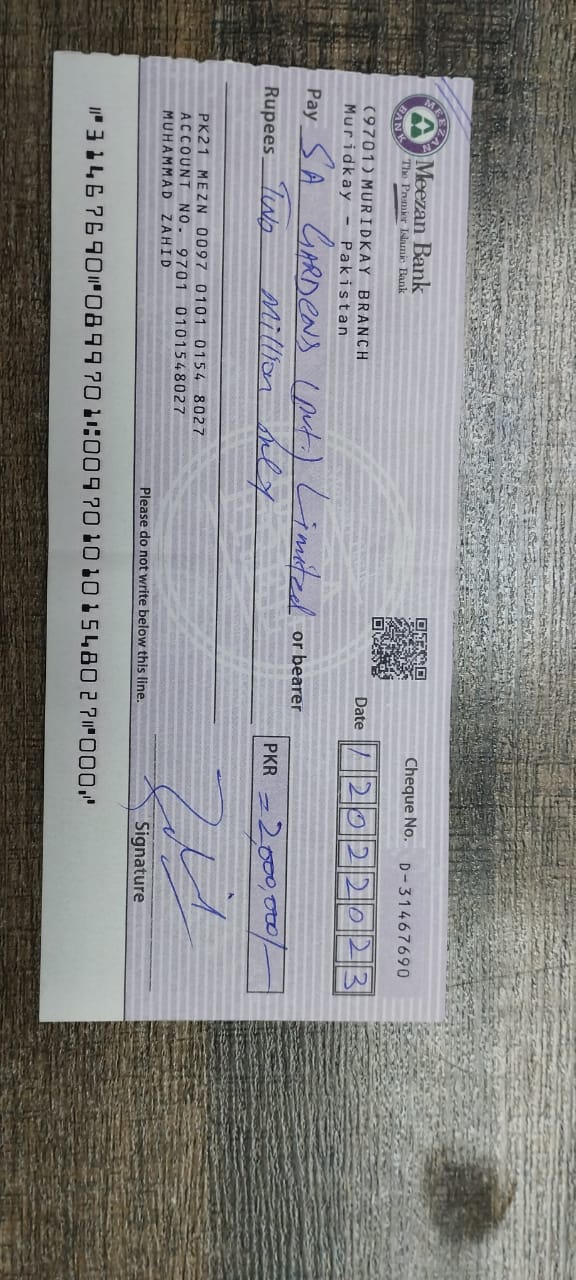 Meezan Bank
The Premier Islamic Bank
MEEZAN BANK
Cheque No. D-31467690
(9701) MURIDKAY BRANCH
Muridkay - Pakistan
Date 12022023
Pay SA GARDENS (Pvt.) Limited or bearer
Rupees Two million only
PKR =2,000,000/-
PK21 MEZN 0097 0101 0154 8027
ACCOUNT NO. 9701 0101548027
MUHAMMAD ZAHID
Signature
Please do not write below this line.
⑈31467690⑈0899701⑆0097010101548027⑈000⑈